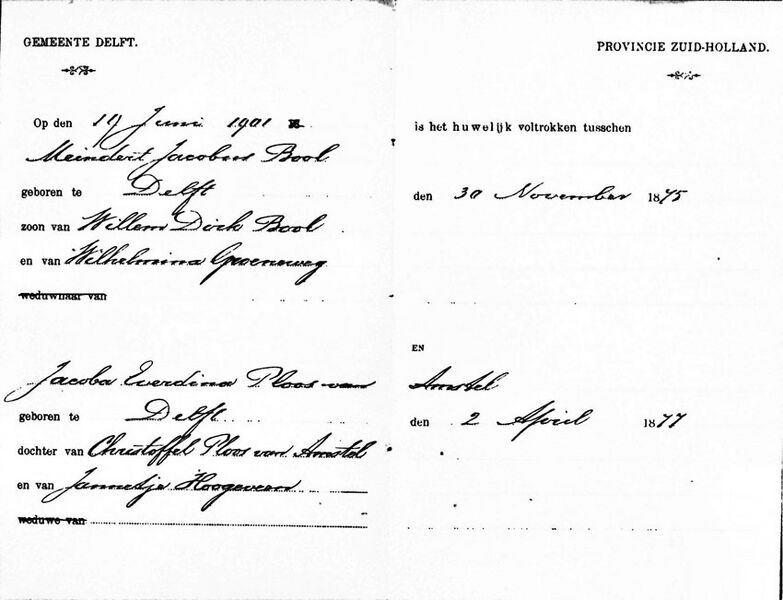 GEMEENTE DELFT. PROVINCIE ZUID-HOLLAND.
Op den 19 Juni 1901 is het huwelijk voltrokken tusschen
Meindert Jacobus Bool
geboren te Delft den 30 November 1875
zoon van Willem Dirk Bool
en van Wilhelmina Groeneweg
weduwnaar van
EN
Jacoba Everdina Ploos van Amstel
geboren te Delft den 2 April 1877
dochter van Christoffel Ploos van Amstel
en van Jannetje Hoogeveen
weduwe van